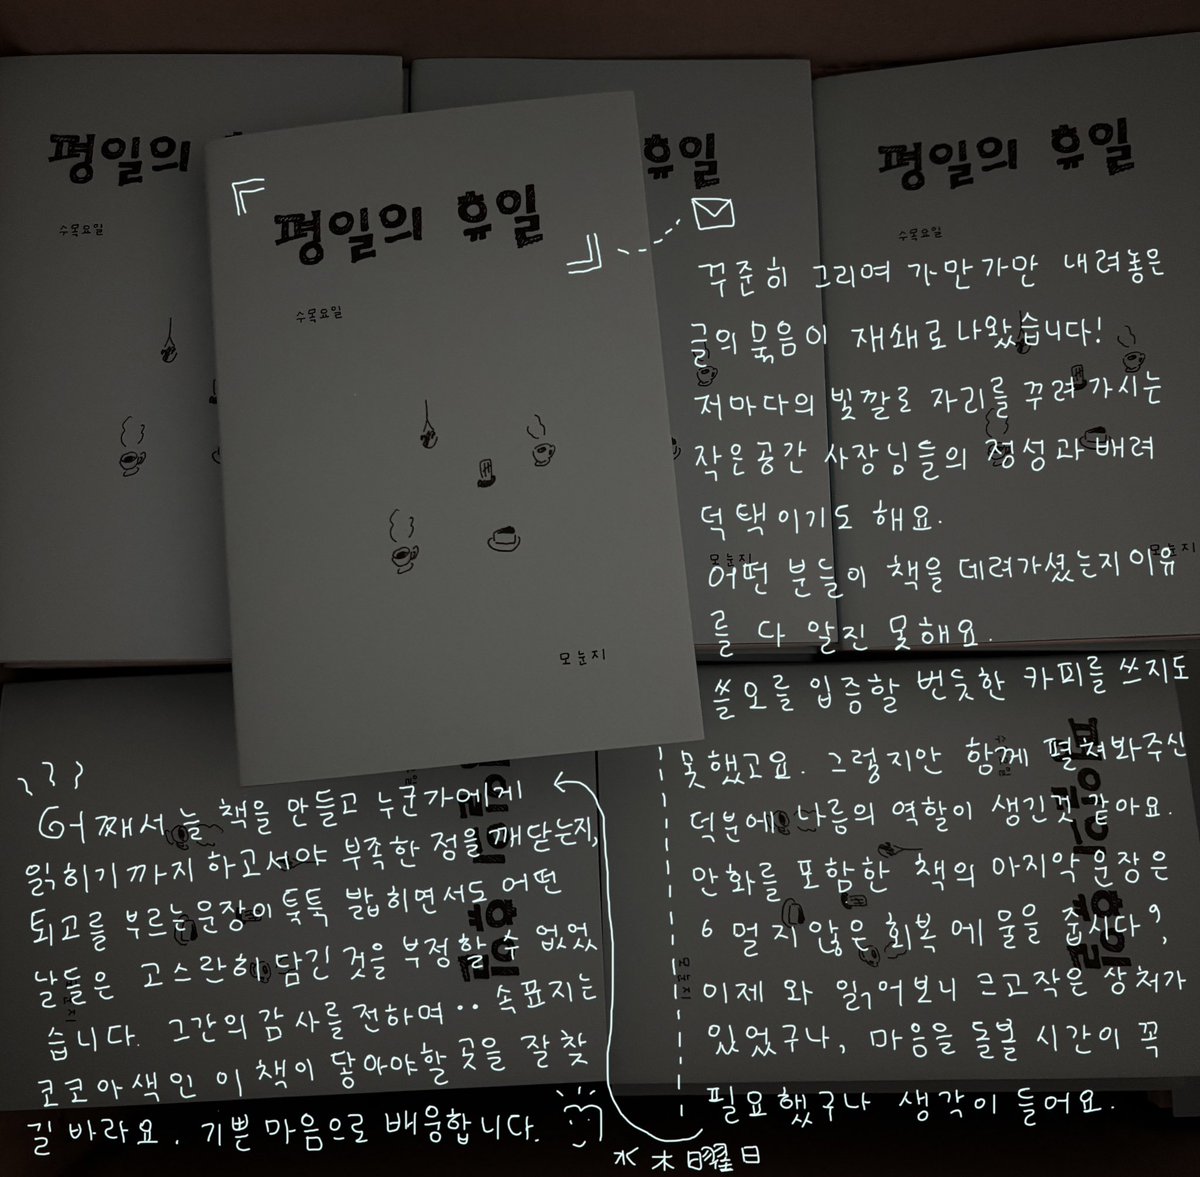 평일의 휴일
수목요일
모눈지
평일의
수목요일
휴일
평일의 휴일
수목요일
모눈지
모눈지
꾸준히 그리여 가만가만 내려놓은
글의 묶음이 재쇄로 나왔습니다!
저마다의 빛깔로 자리를 꾸려 가시는
작은 공간 사장님들의 정성과 배려
덕택이기도 해요.
어떤 분들이 책을 데려가셨는지 이유
를 다 알진 못해요.
쓸모를 입증할 번듯한 카피를 쓰지도
못했고요. 그렇지만 함께 펼쳐봐주신
덕분에 나름의 역할이 생긴것 같아요.
만화를 포함한 책의 마지막 문장은
‘멀지않은 회복에 물을 줍시다’,
이제 와 읽어보니 크고작은 상처가
있었구나, 마음을 돌볼 시간이 꼭
필요했구나 생각이 들어요.
어째서 늘 책을 만들고 누군가에게
읽히기까지 하고서야 부족한 점을 깨닫는지,
퇴고를 부르는 문장이 툭툭 밟히면서도 어떤
날들은 고스란히 담긴 것을 부정할 수 없었
습니다. 그간의 감사를 전하며·· 속표지는
코코아색인 이 책이 닿아야할 곳을 잘 찾
길 바라요. 기쁜 마음으로 배웅합니다.
水木曜日
평일의 휴일
평일의 휴일
모눈지